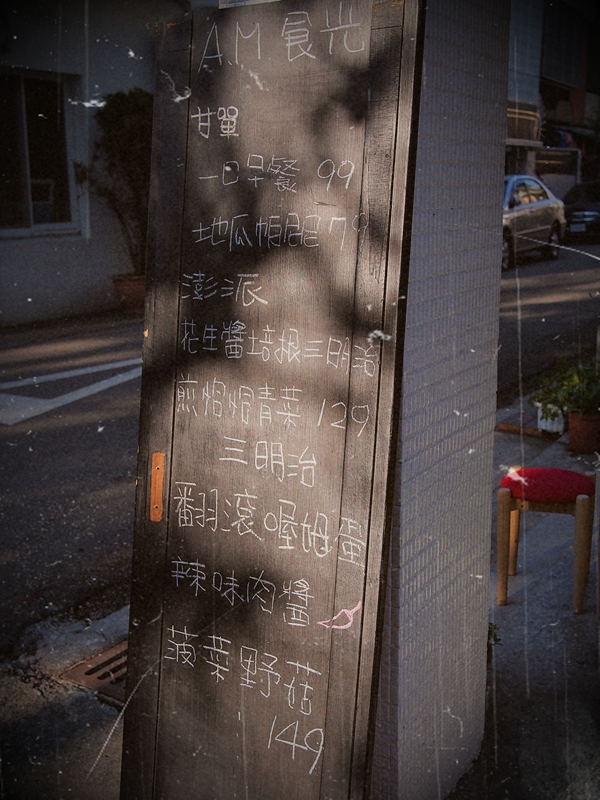 A.M 食光
甘單
一日早餐 99
地瓜 79
澎湃
花生醬培根三明治
煎焰焜青菜 129
三明治
翻滾喔姆蛋
辣味肉醬
菠菜野菇
149